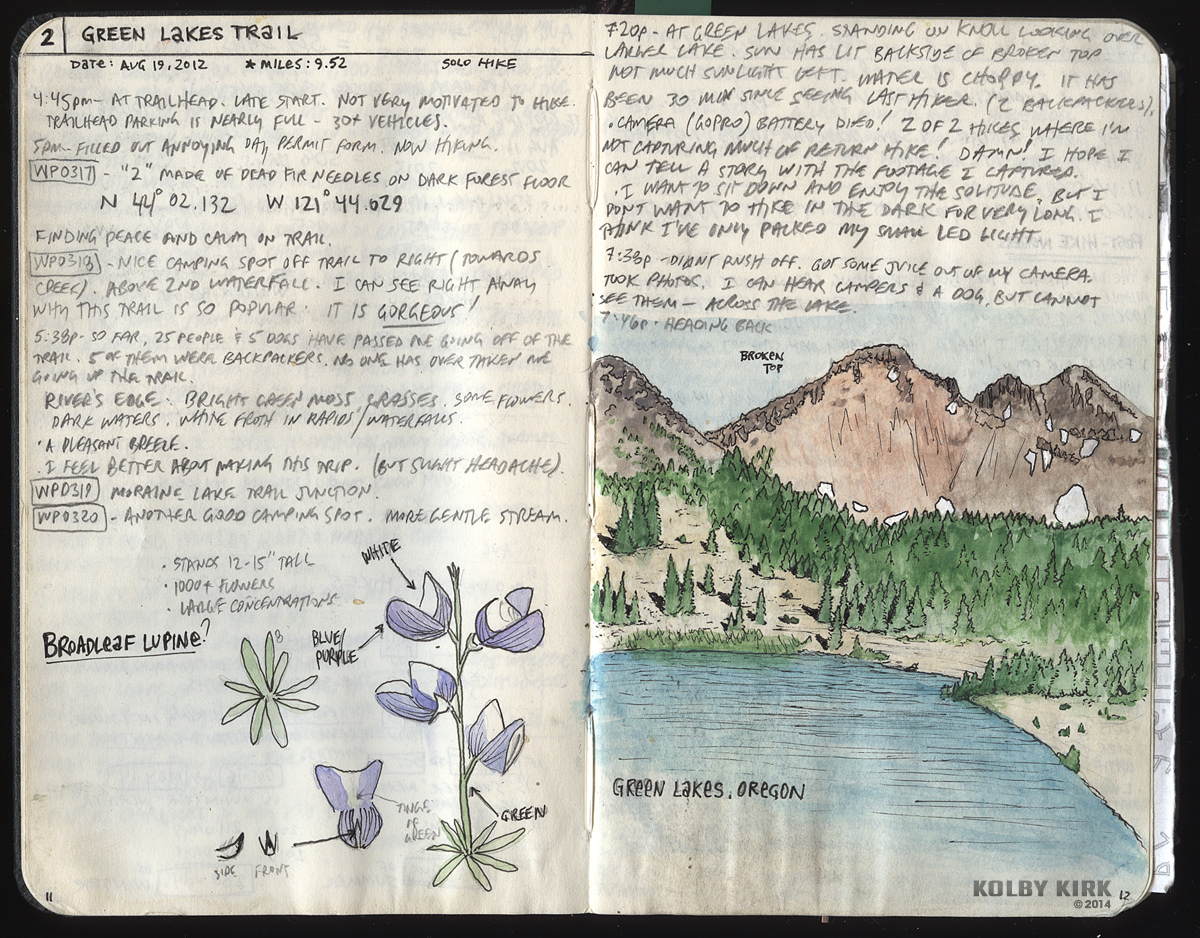 2 GREEN LAKES TRAIL
DATE: AUG 19, 2012 ★ MILES: 9.52 SOLO HIKE
4:45pm - AT TRAILHEAD. LATE START. NOT VERY MOTIVATED TO HIKE.
TRAILHEAD PARKING IS NEARLY FULL - 30+ VEHICLES.
5pm - FILLED OUT ANNOYING DAY PERMIT FORM. NOW HIKING.
WP0317 - "2" MADE OF DEAD FIR NEEDLES ON DARK FOREST FLOOR
N 44° 02.132 W 121° 44.029
FINDING PEACE AND CALM ON TRAIL.
WP0318 - NICE CAMPING SPOT OFF TRAIL TO RIGHT (TOWARDS
CREEK). ABOVE 2ND WATERFALL. I CAN SEE RIGHT AWAY
WHY THIS TRAIL IS SO POPULAR. IT IS GORGEOUS!
5:38p - SO FAR, 25 PEOPLE & 5 DOGS HAVE PASSED ME GOING OFF OF THE
TRAIL. 5 OF THEM WERE BACKPACKERS. NO ONE HAS OVER TAKEN ME
GOING UP THE TRAIL.
RIVER'S EDGE. BRIGHT GREEN MOSS GRASSES. SOME FLOWERS.
DARK WATERS. WHITE FROTH IN RAPIDS/WATERFALLS.
· A PLEASANT BREEZE.
· I FEEL BETTER ABOUT MAKING THIS TRIP. (BUT SLIGHT HEADACHE).
WP0319 MORAINE LAKE TRAIL JUNCTION.
WP0320 - ANOTHER GOOD CAMPING SPOT. MORE GENTLE STREAM.
· STANDS 12-15" TALL
· 1000+ FLOWERS
· LARGE CONCENTRATIONS
BROADLEAF LUPINE?
8
WHITE
BLUE/
PURPLE
TINGE
OF
GREEN
GREEN
SIDE FRONT
11
7:20p - AT GREEN LAKES. STANDING ON KNOLL LOOKING OVER
LARGER LAKE. SUN HAS LIT BACKSIDE OF BROKEN TOP
NOT MUCH SUNLIGHT LEFT. WATER IS CHOPPY. IT HAS
BEEN 30 MIN SINCE SEEING LAST HIKER. (2 BACKPACKERS).
· CAMERA (GOPRO) BATTERY DIED! 2 OF 2 HIKES WHERE I'M
NOT CAPTURING MUCH OF RETURN HIKE! DAMN! I HOPE I
CAN TELL A STORY WITH THE FOOTAGE I CAPTURED.
· I WANT TO SIT DOWN AND ENJOY THE SOLITUDE, BUT I
DON'T WANT TO HIKE IN THE DARK FOR VERY LONG. I
THINK I'VE ONLY PACKED MY SMALL LED LIGHT.
7:38p - DIDNT RUSH OFF. GOT SOME JUICE OUT OF MY CAMERA.
TOOK PHOTOS. I CAN HEAR CAMPERS & A DOG, BUT CANNOT
SEE THEM - ACROSS THE LAKE.
7:46p - HEADING BACK
BROKEN
TOP
GREEN LAKES, OREGON
KOLBY KIRK
© 2014
12